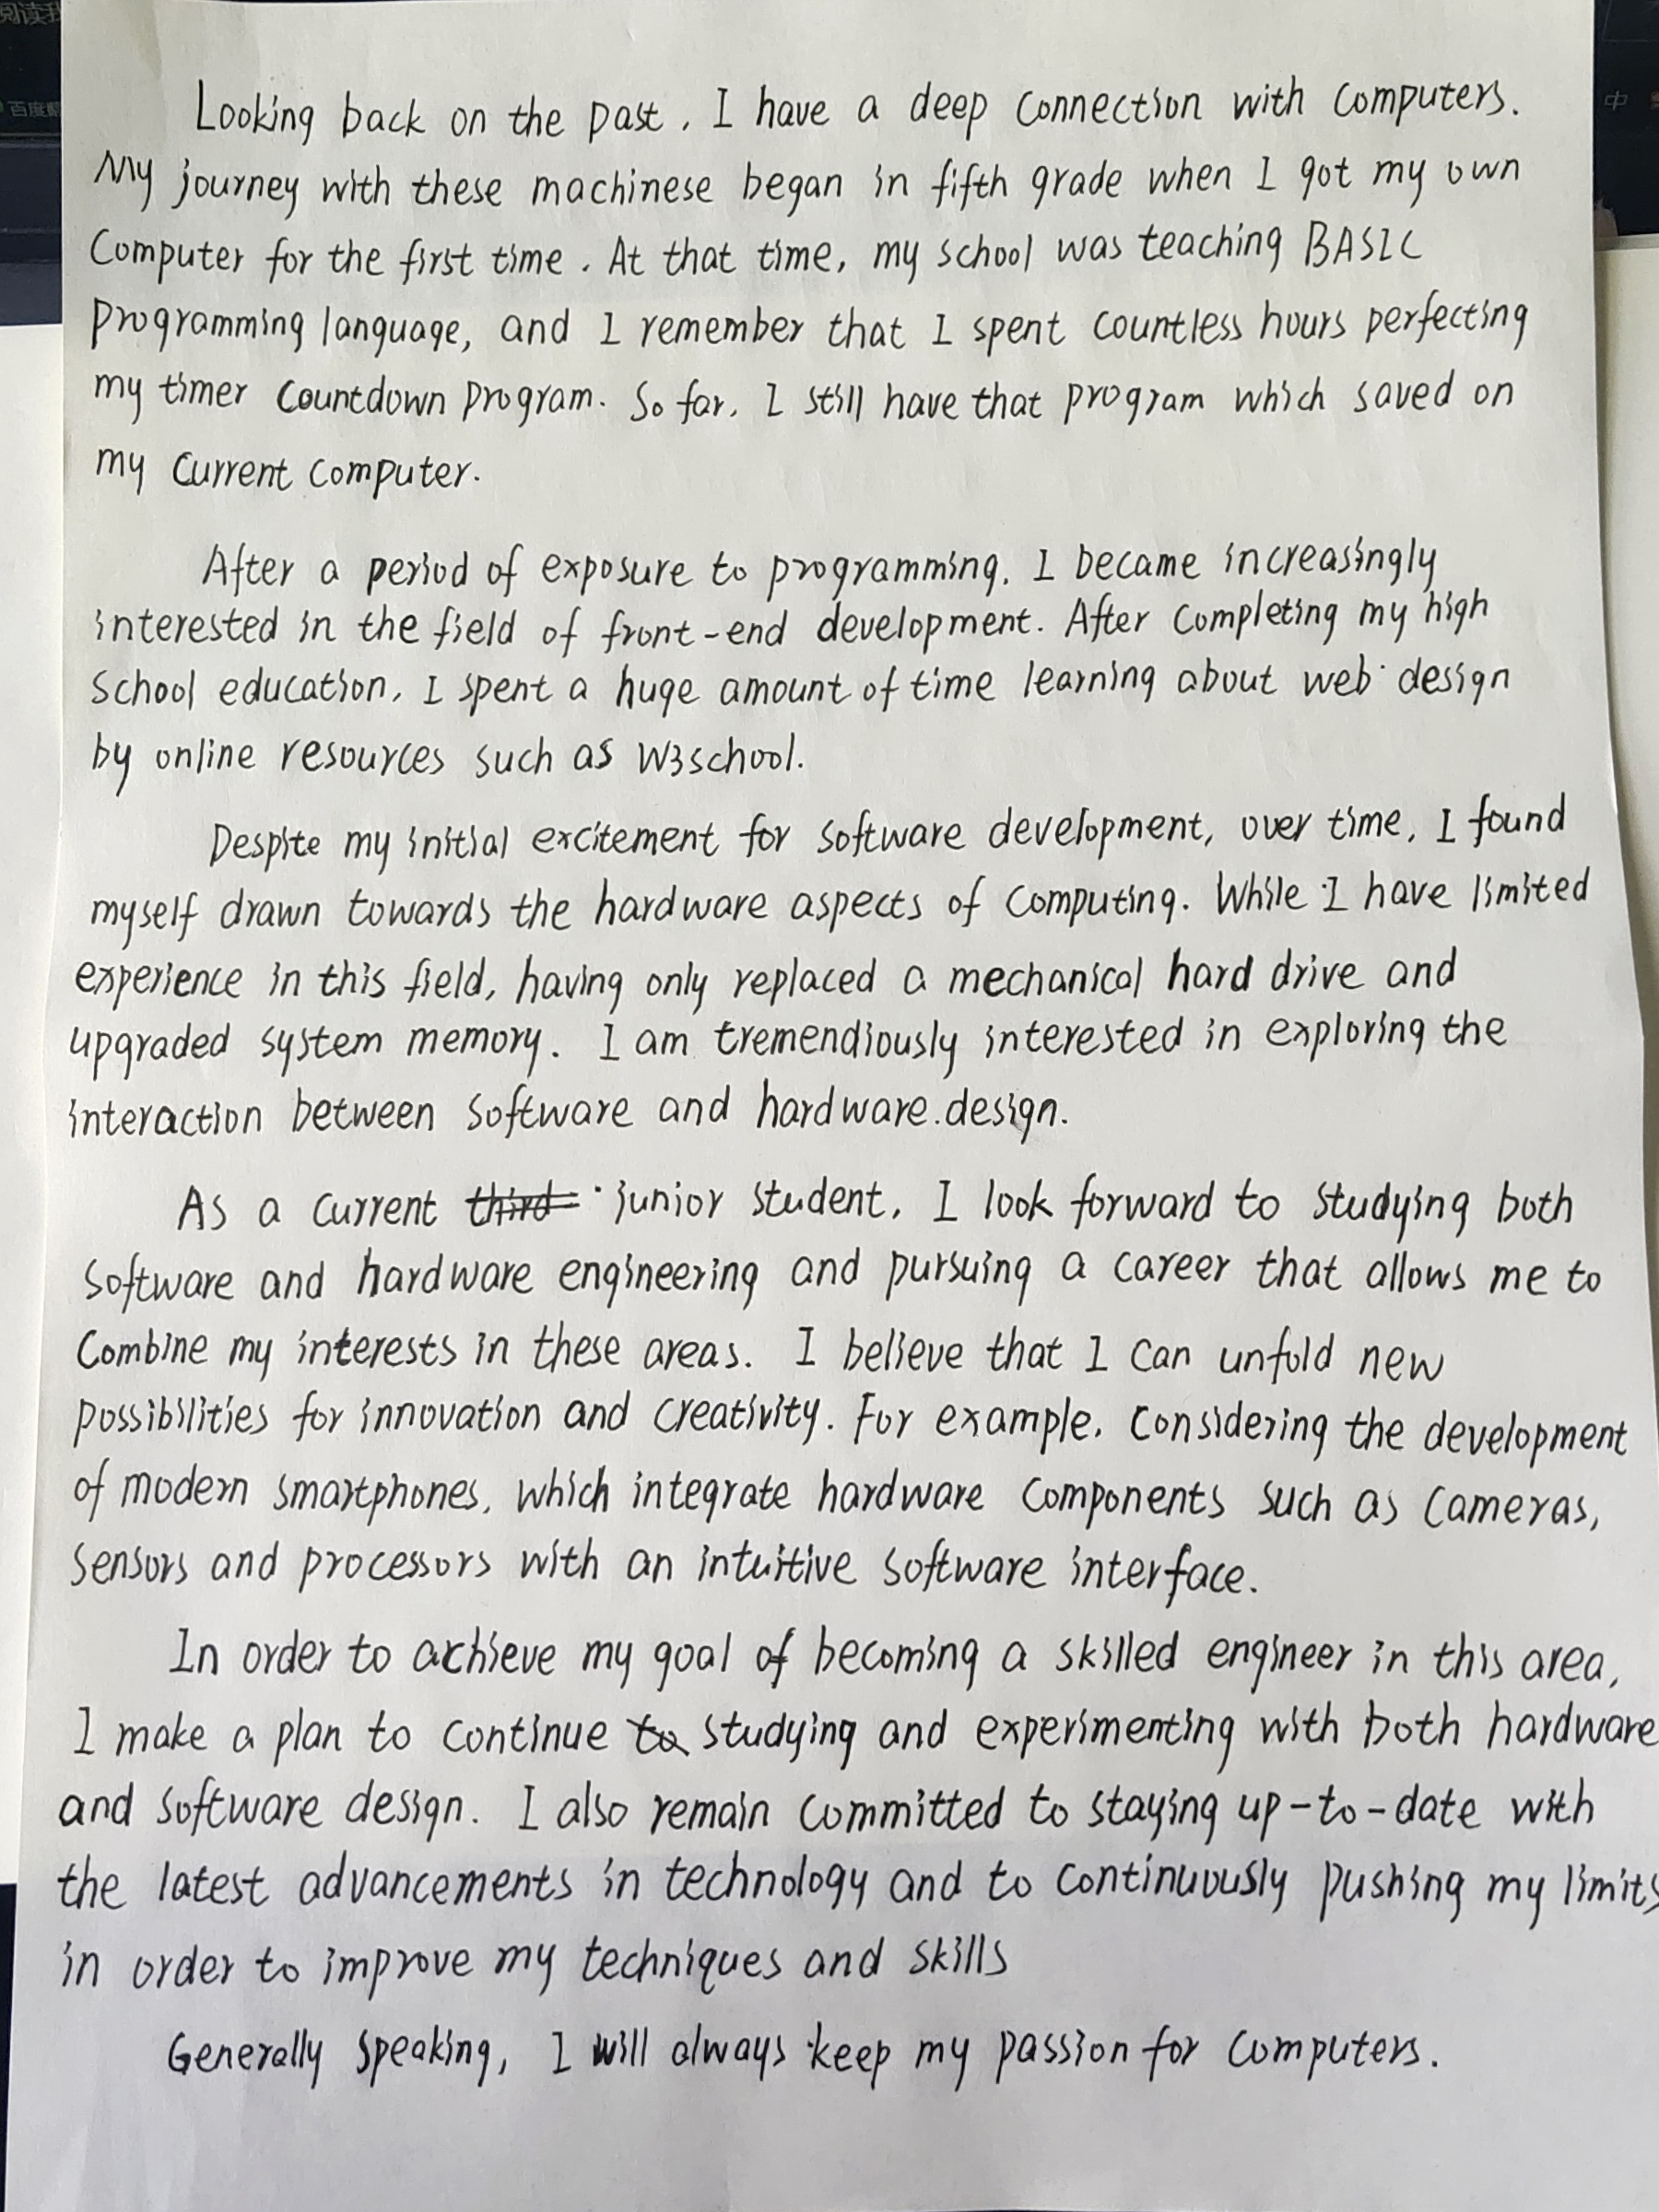 阅读
百度翻
中
Looking back on the past, I have a deep connection with computers.
My journey with these machinese began in fifth grade when I got my own
Computer for the first time. At that time, my school was teaching BASIC
programming language, and I remember that I spent countless hours perfecting
my timer countdown program. So far, I still have that program which saved on
my current computer.
After a period of exposure to programming, I became increasingly
interested in the field of front-end development. After completing my high
school education, I spent a huge amount of time learning about web design
by online resources such as W3school.
Despite my initial excitement for software development, over time, I found
myself drawn towards the hardware aspects of computing. While I have limited
experience in this field, having only replaced a mechanical hard drive and
upgraded system memory. I am tremendiously interested in exploring the
interaction between software and hardware.design.
As a current third junior student, I look forward to studying both
software and hardware engineering and pursuing a career that allows me to
combine my interests in these areas. I believe that I can unfold new
possibilities for innovation and creativity. For example, considering the development
of modern smartphones, which integrate hardware components such as cameras,
sensors and processors with an intuitive software interface.
In order to achieve my goal of becoming a skilled engineer in this area,
I make a plan to continue to studying and experimenting with both hardware
and software design. I also remain committed to staying up-to-date with
the latest advancements in technology and to continuously pushing my limits
in order to improve my techniques and skills
Generally speaking, I will always keep my passion for computers.